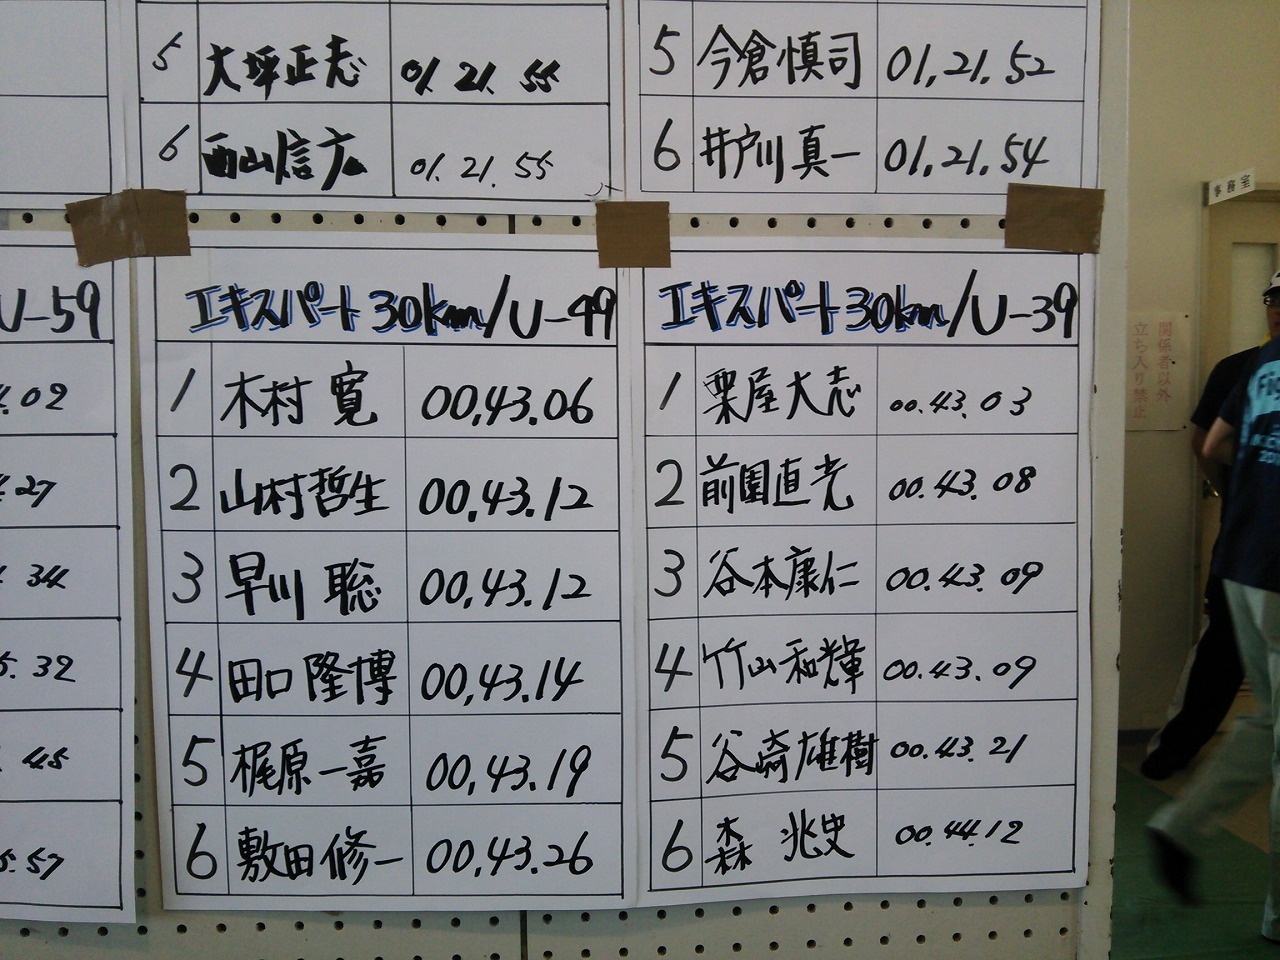 5 大坪正志 01.21.55
6 西山信広 01.21.55
5 今倉慎司 01,21.52
6 井戸川真一 01.21.54
事務室
U-59
.02
.27
.34
.32
.45
.57
エキスパート30km/U-49
1 木村 寛 00,43.06
2 山村哲生 00,43.12
3 早川 聡 00,43.12
4 田口隆博 00,43.14
5 梶原一嘉 00,43.19
6 敷田修一 00,43.26
エキスパート30km/U-39
1 栗屋大志 00.43.03
2 前園直光 00.43.08
3 谷本康仁 00.43.09
4 竹山和輝 00.43.09
5 谷崎雄樹 00.43.21
6 森 兆史 00.44.12
関係者以外
立ち入り禁止